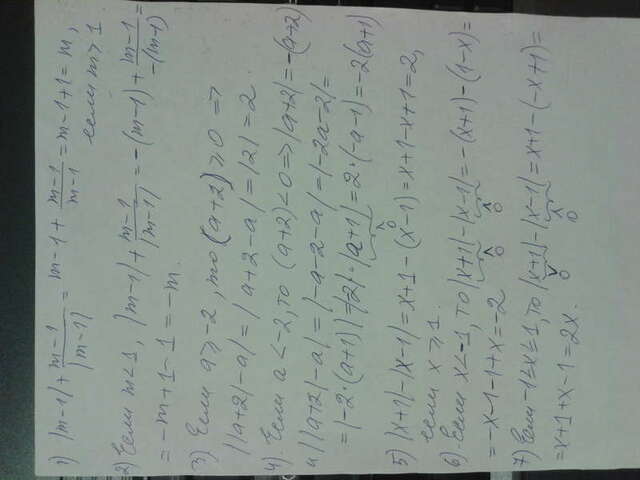 1) |m-1| + \frac{m-1}{|m-1|} = m-1 + \frac{m-1}{m-1} = m-1+1 = m,
если m > 1.
2) Если m < 1, |m-1| + \frac{m-1}{|m-1|} = -(m-1) + \frac{m-1}{-(m-1)} =
= -m+1-1 = -m.
3) Если a ≥ -2, то (a+2) ≥ 0 =>
||a+2|-a| = |a+2-a| = |2| = 2.
4) Если a < -2, то (a+2) < 0 => |a+2| = -(a+2)
и ||a+2|-a| = |-a-2-a| = |-2a-2| =
= |-2·(a+1)| = |-2|·|a+1| = 2·(-a-1) = -2(a+1)
5) |x+1|-|x-1| = x+1-(x-1) = x+1-x+1 = 2,
если x ≥ 1.
6) Если x < -1, то |x+1|-|x-1| = -(x+1)-(1-x) =
= -x-1-1+x = -2
7) Если -1 ≤ x ≤ 1, то |x+1|-|x-1| = x+1-(-x+1) =
= x+1+x-1 = 2x.